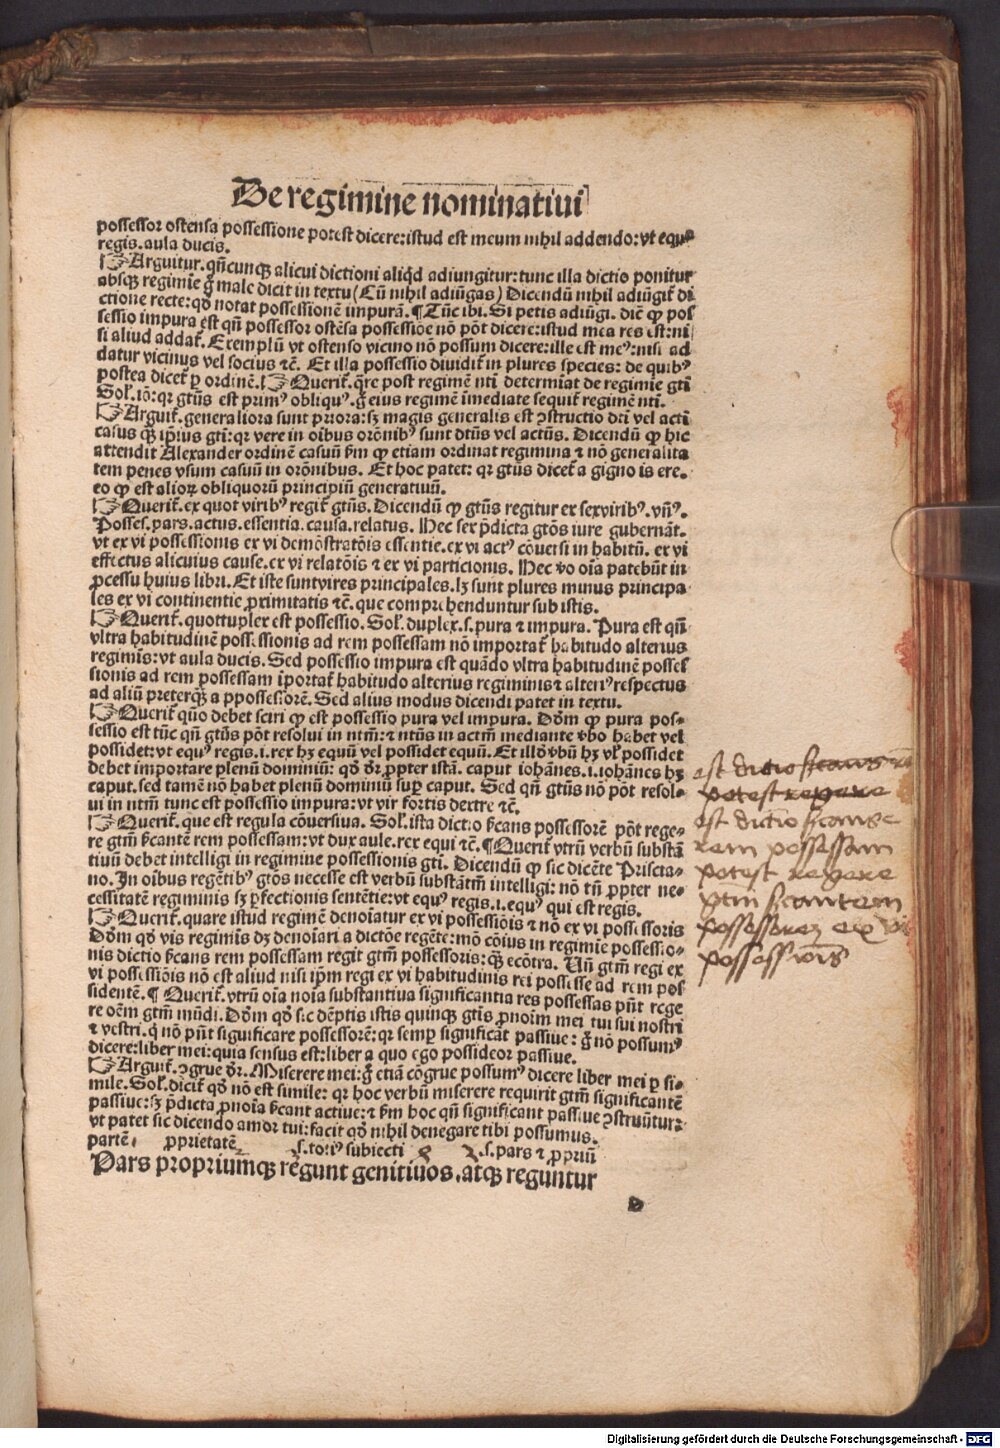 De regimine nominatiui
possessor ostensa possessione potest dicere: istud est meum nihil addendo: vt equꝰ
regis. aula ducis.
☞Arguitur. qñcunqꝫ alicui dictioni aliqͥd adiungitur: tunc illa dictio ponitur
absqꝫ regimĩe ḡ male dicit in textu (Cũ nihil adiũgas) Dicendũ nihil adiũgit̃ di
ctione recte: qð notat possessionẽ impurã. ¶ Tũc ibi. Si petis adiũgi. diẽ ꝙ pos
sessio impura est qñ possessor ostẽsa possessiõe nõ põt dicere: istud mea res est: ni
si aliud addat̃. Exemplũ vt ostenso vicino nõ possum dicere: ille est meꝰ: nisi ad
datur vicinus vel socius ⁊c̃. Et illa possessio diuidit̃ in plures species: de quibꝰ
postea dicet̃ ꝑ ordinẽ. ☞Querit̃. q̃re post regimẽ nti determiat de regimie gti
Sol̃. iõ: qꝛ gtũs est primꝰ obliquꝰ. ḡ eius regimẽ ĩmediate sequit̃ regimẽ nti.
☞Arguit̃. generaliora sunt priora: sꝫ magis generalis est ↄstructio dti vel acti
casus qꝫ ip̃ius gti: qꝛ vere in oĩbus orõnibꝰ sunt dtũs vel actũs. Dicendũ ꝙ hic
attendit Alexander ordinẽ casuũ ẜm ꝙ etiam ordinat regimina ⁊ nõ generalita
tem penes vsum casuũ in orõnibus. Et hoc patet: qꝛ gtũs dicet̃ a gigno is ere.
eo ꝙ est alioꝝ obliquorũ principiũ generatiuũ.
☞Querit̃. ex quot viribꝰ regit̃ gtũs. Dicendũ ꝙ gtũs regitur ex sex viribꝰ. vñꝰ.
Posses. pars. actus. essentia. causa. relatus. Hec ser p̃dicta gtõs iure gubernãt.
vt ex vi possessionis ex vi demõstratõis essentie. ex vi actꝰ cõuersi in habitũ. ex vi
effectus alicuius cause. ex vi relatõis ⁊ ex vi particionis. Hec ṽo oĩa patebũt in
ꝓcessu huius libri. Et iste sunt vires principales. lꝫ sunt plures minus principa
les ex vi continentie ꝓrimitatis ⁊c̃. que comprehenduntur sub istis.
☞Querit̃. quottuplex est possessio. Sol̃. duplex. s. pura ⁊ impura. Pura est qñ
vltra habitudinẽ possessionis ad rem possessam nõ importat̃ habitudo alterius
regimĩs: vt aula ducis. Sed possessio impura est quãdo vltra habitudinẽ posses
sionis ad rem possessam ĩportat̃ habitudo alterius regiminis ⁊ alteriꝰ respectus
ad aliũ preterqꝫ a ppossessorẽ. Sed alius modus dicendi patet in textu.
☞Querit̃ quõ debet sciri ꝙ est possessio pura vel impura. Dõm ꝙ pura pos⸗
sessio est tũc qñ gtũs põt resolui in ntm̃: ⁊ ntũs in actm̃ mediante ṽbo habet vel
possidet: vt equꝰ regis. i. rex hꝫ equũ vel possidet equũ. Et illð ṽbũ hꝫ vl̃ possidet
debet importare plenũ dominiũ: qð dr̃ ꝓpter istã. caput iohãnes. i. iohãnes hꝫ
caput. sed tamẽ nõ habet plenũ dominiũ suꝑ caput. Sed qñ gtũs nõ põt resol⸗
ui in ntm̃ tunc est possessio impura: vt vir fortis dextre ⁊c̃.
☞Querit̃. que est regula cõuersiua. Sol̃. ista dictio ẜcans possessorẽ põt rege⸗
re gtm̃ ẜcantẽ rem possessam: vt dux aule. rex equi ⁊c̃. ¶ Querit̃ vtrũ verbũ substã
tiuũ debet intelligi in regimine possessionis gti. Dicendũ ꝙ sic dicẽte Priscia⸗
no. In oĩbus regẽtibꝰ gtõs necesse est verbũ substãtm̃ intelligi: nõ tñ ꝓpter ne⸗
cessitatẽ regiminis sꝫ ꝑfectionis sentẽtie: vt equꝰ regis. i. equꝰ qui est regis.
☞Querit̃. quare istud regimẽ denoĩatur ex vi possessiõis ⁊ nõ ex vi possessoris
Dõm qð vis regimĩs dꝫ denoĩari a dictõe regẽte: mõ cõius in regimĩe possessio⸗
nis dictio ẜcans rem possessam regit gtm̃ possessoris: qꝫ ecõtra. Vñ gtm̃ regi ex
vi possessiõis nõ est aliud nisi ip̃m regi ex vi habitudinis rei possesse ad rem pos
sidentẽ. ¶ Querit̃. vtrũ oĩa noĩa substantiua significantia res possessas pñt rege
re oẽm gtm̃ mũdi. Dõm qð sic dẽptis istis quinqꝫ gtĩs ꝓnoĩm mei tui sui nostri
⁊ vestri. q̃ nõ pñt significare possessorẽ: qꝛ semꝑ significãt passiue: ḡ nõ possumꝰ
dicere: liber mei: quia sensus est: liber a quo ego possideor passiue.
☞Arguit̃. ↄgrue dr̃. Miserere mei: ḡ etiã cõgrue possumꝰ dicere liber mei ꝑ si⸗
mile. Sol̃. dicit̃ qð nõ est simile: qꝛ hoc verbũ miserere requirit gtm̃ significantẽ
passiue: sꝫ p̃dicta ꝓnoĩa ẜcant actiue: ⁊ ẜm hoc qñ significant passiue ↄstruũtur:
vt patet sic dicendo amor tui: facit qð nihil denegare tibi possumus.
partẽ. ꝓprietatẽ s. totiꝰ subiecti s. pars ⁊ ꝓpriũ
Pars propriumqꝫ rẽgunt genitiuos. atqꝫ reguntur
D
est dictio ſcans
potest regere
est dictio ſcans
rem possessam
potest regere
gtm̃ ſcantem
possessorem ex vi
possessiõis
Digitalisierung gefördert durch die Deutsche Forschungsgemeinschaft - DFG